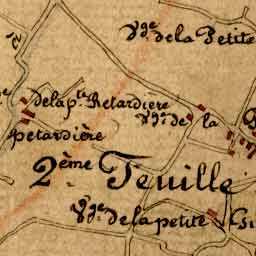 Vge. de la Petite
de la pte. Retardière
Vge. de la
petardière
2ème Feuille
Vge. de la petite